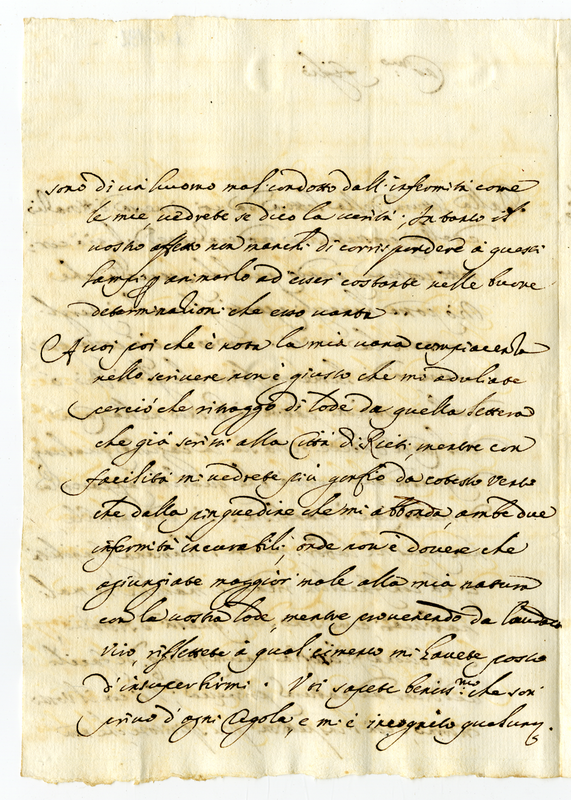 sono di un huomo mal condotto dall'infermità come
le mie, vedrete se dico la verità; In tanto il
vostro affetto non manchi di corrispondere à questi
lampi p animarlo ad esser costante nelle buone
determinationi che esso vanta
A voi poi che è nota la mia vana compiacenza
nello scrivere non è giusto che mi aduliate
perciò che ritraggo di lode da quella lettera
che già scrissi alla Città di Rieti mentre con
facilità mi vedrete più gonfio da cotesto vento
che dalla pinguedine che mi abbonda, ambe due
infermità incurabili, onde non è dovere che
agiungiate maggior male alla mia natura
con la vostra lode, mentre provenendo da laudato
viro, riflettete à qual cimento mi havete posto
d'insuperbirmi. Voi sapete beniss.mo che son
privo d'ogni regola, e mi è incognito qualunq.